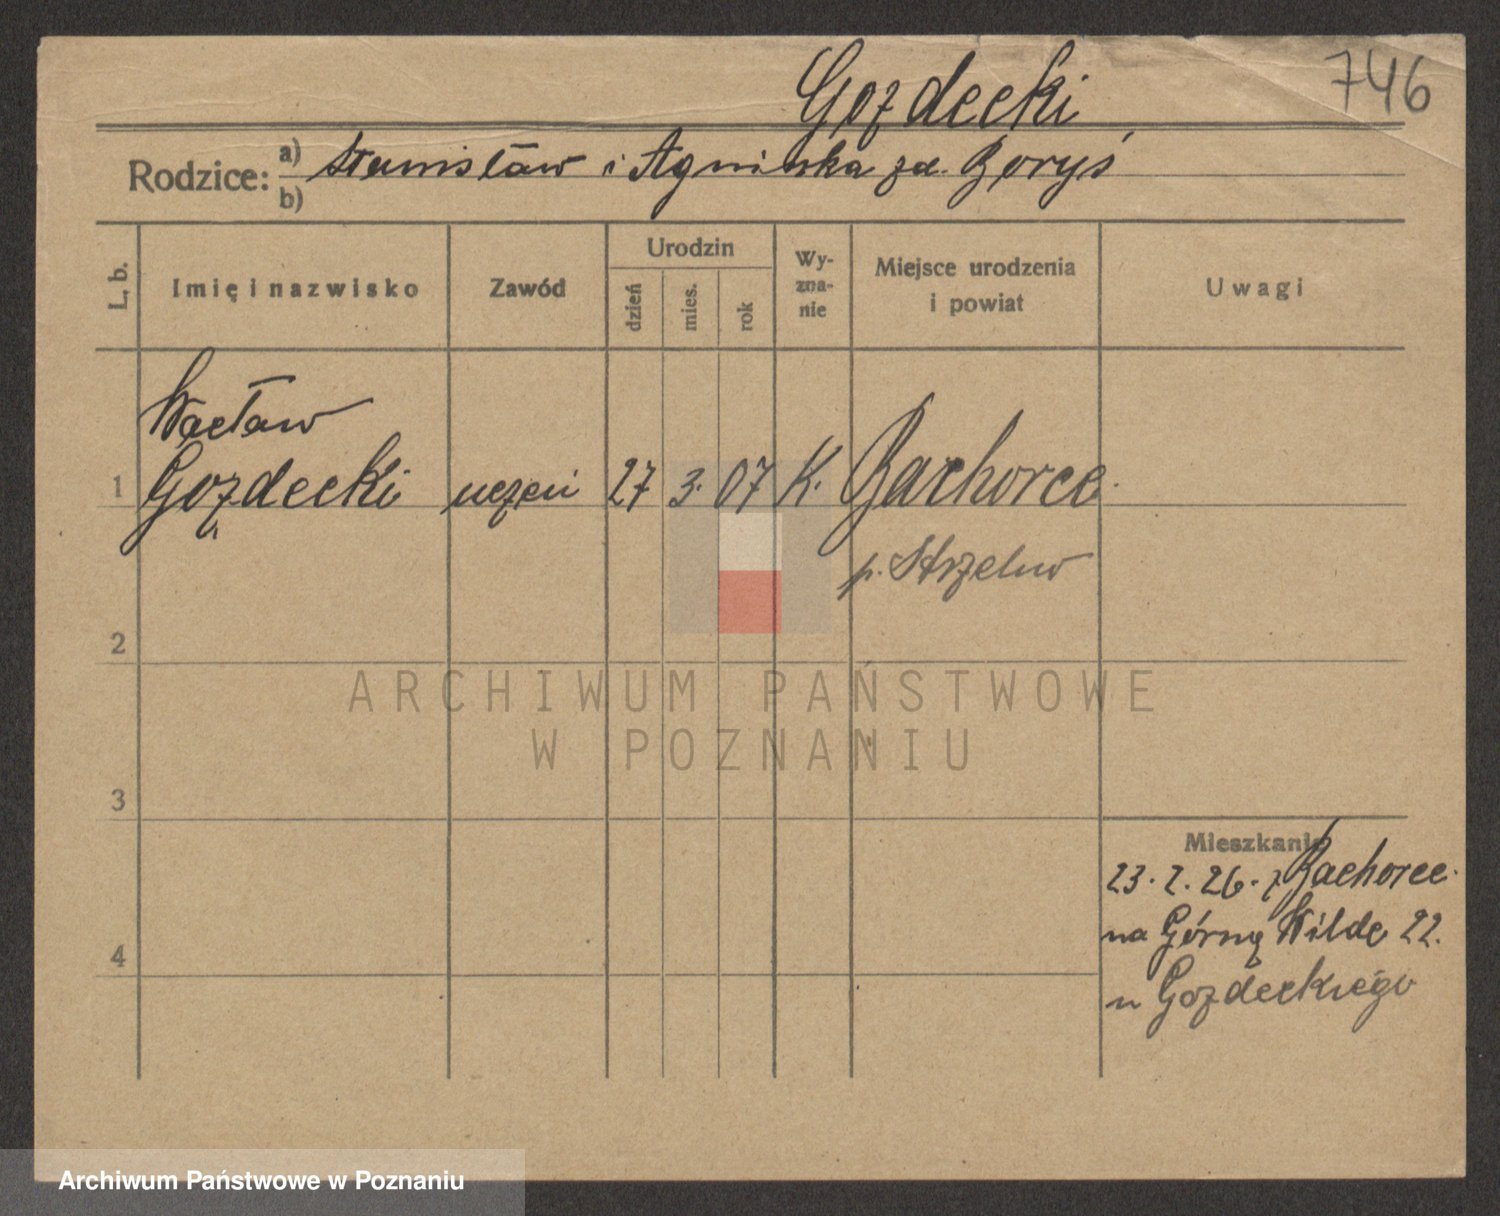 746
Gozdecki
Rodzice: a) Stanisław i Agnieszka zd. Boryś
b)
L. b. Imię i nazwisko Zawód Urodzin dzień mies. rok Wyzna-nie Miejsce urodzenia i powiat Uwagi
Wacław
1 Gozdecki uczeń 27 3. 07 K. Bachorce.
p. Strzelno
2
ARCHIWUM PAŃSTWOWE
W POZNANIU
3
Mieszkanie
23. 2. 26. z Bachorce.
na Górną Wildę 22.
4
u Gozdeckiego
Archiwum Państwowe w Poznaniu